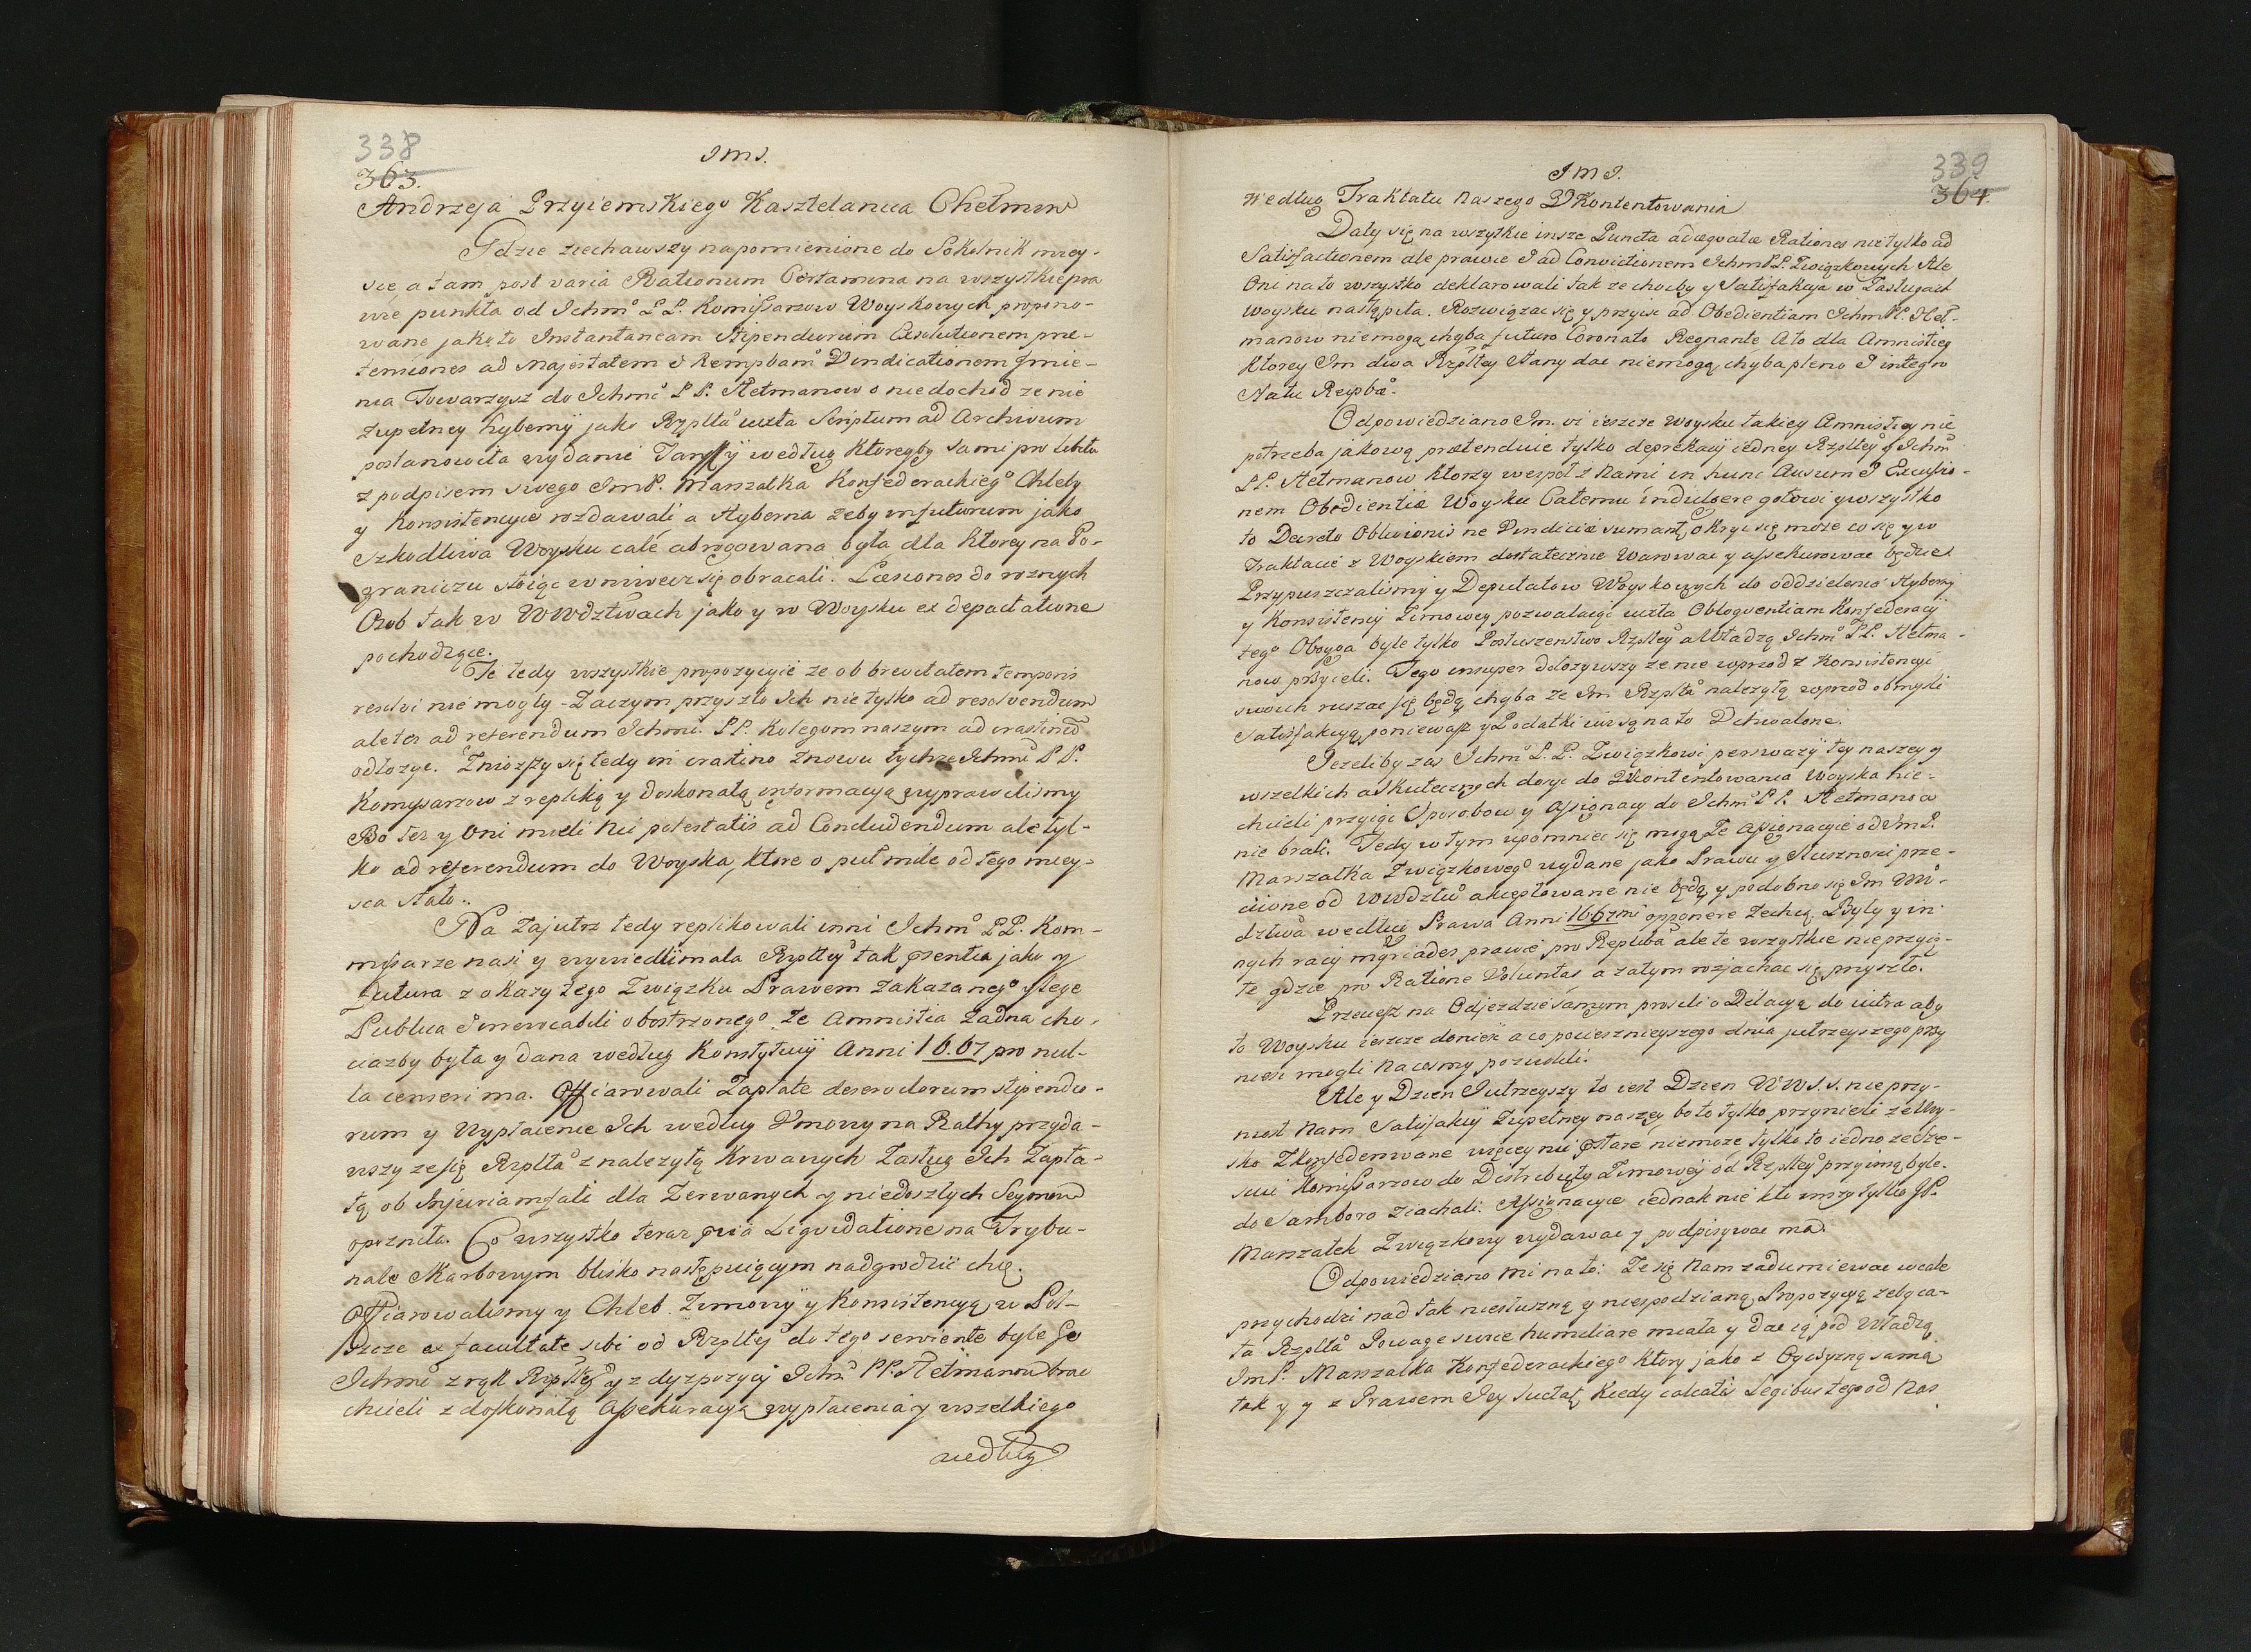 338
363.
Jms.
Andrzeja Przyiemskiego Kasztelanica Chełmin
Gdzie ziechawszy na pomienione do Sokolnik miey-
sce a tam post varia Rationum Certamina na wszystkie pra
wie punkta od Ichm PP. Komissarzow Woyskowych propono-
wane jako to Instantaneam Stipendiorum Exolutionem prae-
tensiones ad Majestatem et Rempbam Vindicationem Imie-
nia Towarzysz do Ichmc PP. Hetmanow o niedochodzenie
zupełney hyberny jako Rzplta iuxta Scriptum ad Archivum
postanowiła wydanie Taryffy według ktoreyby sami pro libitu
z podpisem swego ImP. Marszałka Konfederackiego Chleby
y Konsistencye rozdawali a Hyberna żeby in futurum jako
szkodliwa Woysku całe abrogowana była dla ktorey na Po-
graniczu stoiąc wniwecz się obracali. Laesiones do roznych
Osob tak w WWdztwach jako y w Woysku ex depactatione
pochodzące.
Te tedy wszystkie propozycyie ze ob brevitatem temporis
resolvi nie mogły - Zaczym przyszło Ich nie tylko ad resolvendum
ale tez ad referendum Ichmc. PP. Kolegom naszym ad crastinū
odłozyc. Zniozszy się tedy in crastino znowu tychze Ichmc PP.
Komysarzow z repliką y doskonałą informacyą wyprawilismy
Bo tez y Oni mieli nie potestatis ad Concludendum ale tyl-
ko ad referendum do Woyska, ktore o puł mile od tego miey-
sca stało.
Na zajutrz tedy replikowali inni Ichm PP. Kom-
mysarze nasi y wywiedli mala Rzpltey tak psentia jako y
futura z okazy tego Związku Prawem zakazanego y Lege
Publica Irrevocabili obostrzonego. Ze Amnistia żadna cho-
ciazby była y dana według Konstytucij Anni 1667 pro nul-
la censeri ma. Offiarowali Zapłate deservitorum stipendio-
rum y Wypłacenie Ich według Umowy na Rathy przyda-
wszy ze się Rzplta z nalezytą krwawych Zasług Ich Zapła-
tą ob Injuriam fati dla Zerwanych y niedoszłych Seymow
opozniła. Co wszystko teraz pvia Ligvidatione na Trybu-
nale Skarbowym blisko następuiącym nadgrodzić chę.
Offiarowalismy y Chleb Zimowy y Konsistencyą w Pol-
szcze ex facultate sibi od Rzpltey do tego serviente byle Go
Ichmc z rąk Rzpltey y z dyzpozycij Ichm PP. Hetmanow brac
chcieli z doskonałą assekuracyą wypłacenia y wszelkiego
według
339
364.
Jms.
według Traktatu naszego Ukontentowania
Dały się na wszytkie insze Puncta adaeqvatae Rationes nie tylko ad
Satisfactionem ale prawie et ad Convictionem IchmPP. Związkowych Ale
Oni na to wszystko deklarowali tak ze chocby y Satisfakcya w Zasługach
woysku nastąpiła. Rozwiązac się y przyisc ad Obedientiam IchmPP. Het-
manow nie mogą chyba futuro Coronato Regnante Ato dla Amnistiey
ktorey Im dwa Rzpltey Stany dac niemogą, chyba pleno et integro
Statu Reipbae.
Odpowiedziano Im. iż ieszcze Woysku takiey Amnistiey nie
potrzeba jakową praetenduie tylko deprekacij iedney Rzpltey y Ichm
PP. Hetmanow ktorzy wespoł z Nami in hunc Ausum et Excussio-
nem Obedientiae Woysku Całemu indulgere gotowi y wszystko
to Decreto Oblivionis ne Vindiciae sumant, okryc się może co się y w
Traktacie z Woyskiem dostatecznie Warowac y assekurowac będzie.
Przypuszczalismy y Deputatow Woyskowych do oddzielenia Hyberny
y Konsistencij Zimowey pozwalaiąc iuxta Obloqventiam Konfederacij
tego Oboyga byle tylko Posłuszenstwo Rzpltey a Władzą Ichm PP. Hetma-
now przyieli. Tego insuper dołozywszy ze nie wprzod z Konsistencyi
swoich ruszac się będą chyba ze Im Rzplta nalezytą wprzod obmysli
Satisfakcyą, poniewasz y Podatki iuz są na to Uchwalone.
Jezeliby zas Ichm P.P. Związkowi perswazij tey naszey y
wszelkich a skutecznych dosyc do Ukontentowania Woyska nie-
chcieli przyiąc Sposobow y Assignacij do Ichm PP. Hetmanow
nie brali. Tedy w tym upomniec się mogą Ze Assignacyie od ImP.
Marszałka Związkowego wydane jako Prawu y Słusznosci prze-
ciwne od WWdztw akceptowane nie będą y podobno się Im Wo-
dztwa według Prawa Anni 1667mi opponere zechcą. Były y in-
nych racij myriades prawie pro Repubca ale te wszystkie nieprzyię-
te gdzie pro Ratione Voluntas a zatym rozjachac się przyszło.
Przecięsz na Odjezdzie samym prosili o Dilacyą do iutra aby
to Woysku ieszcze doniesć a co pociesznieyszego dnia jutrzeyszego przy
niesc mogli na cosmy pozwolili.
Ale y Dzien Jutrzeyszy to iest Dzien WWS.S. nie przy-
niosł Nam Satisfakcij Zupełney naszey bo to tylko przynieśli że Woy-
sko Zkonfederowane więcey nic pstare niemoże tylko to iedno ze dze-
suc Komissarzow do Distributy Zimowey od Rzpltey przyimą byle
do Sambora ziachali. Assignacyie iednak nie kto inszy tylko JP.
Marszałek Związkowy wydawac y podpisywac ma.
Odpowiedziano mi na to: Ze się Nam zadumiewac wcale
przychodzi nad tak niesłuszną y niespodzianą Propozycyą zeby ca-
ła Rzplta Powage swoie humiliare miała y dac ią pod Władzą
ImP. Marszałka Konfederackiego ktory jako z Oyczyzną samą
tak y z Prawem Jey luctat, kiedy calcatis Legibus tego od Nas